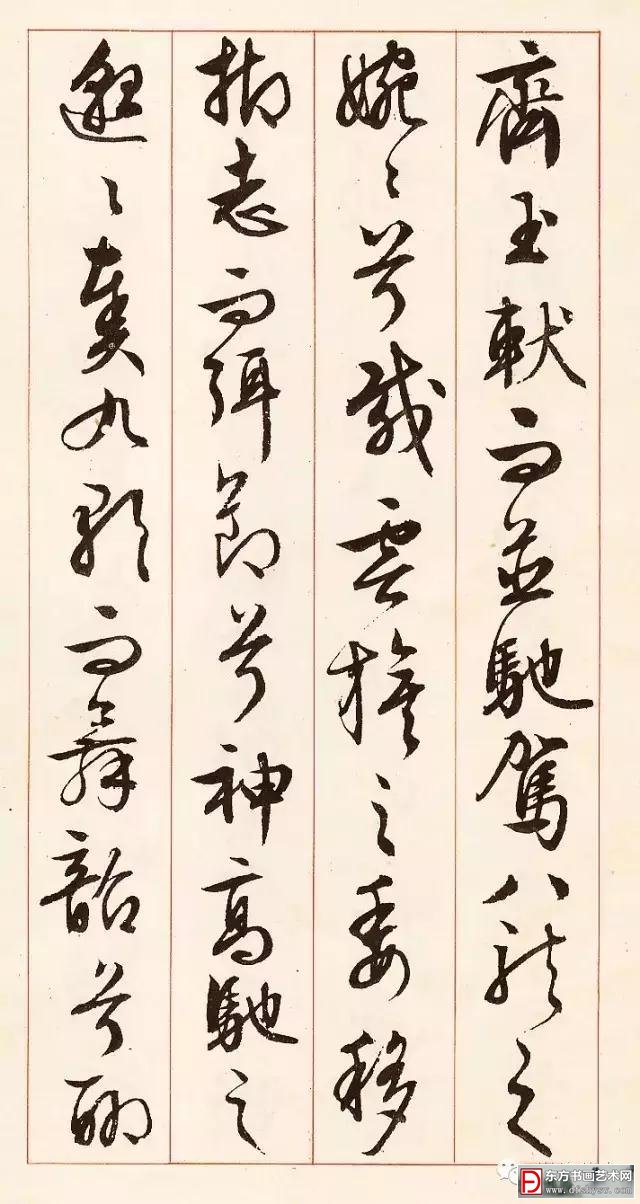 齊玉軑而並馳駕八龍之
婉〻兮載雲旗之委移
抑志而弭節兮神高馳之
邈〻奏九歌而舞韶兮聊
东方书画艺术网